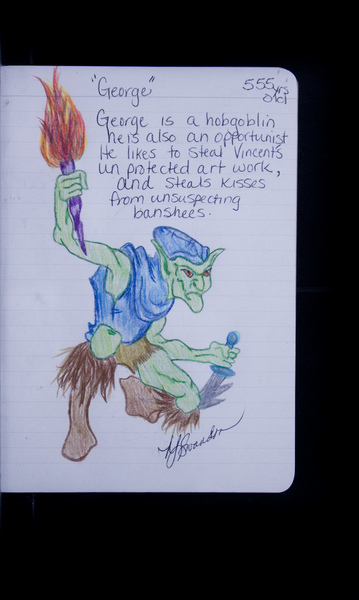 "George"
555
yrs
old
George is a hobgoblin
he is also an opportunist
He likes to steal Vincent's
un protected art work,
and steals kisses
from unsuspecting
banshees.